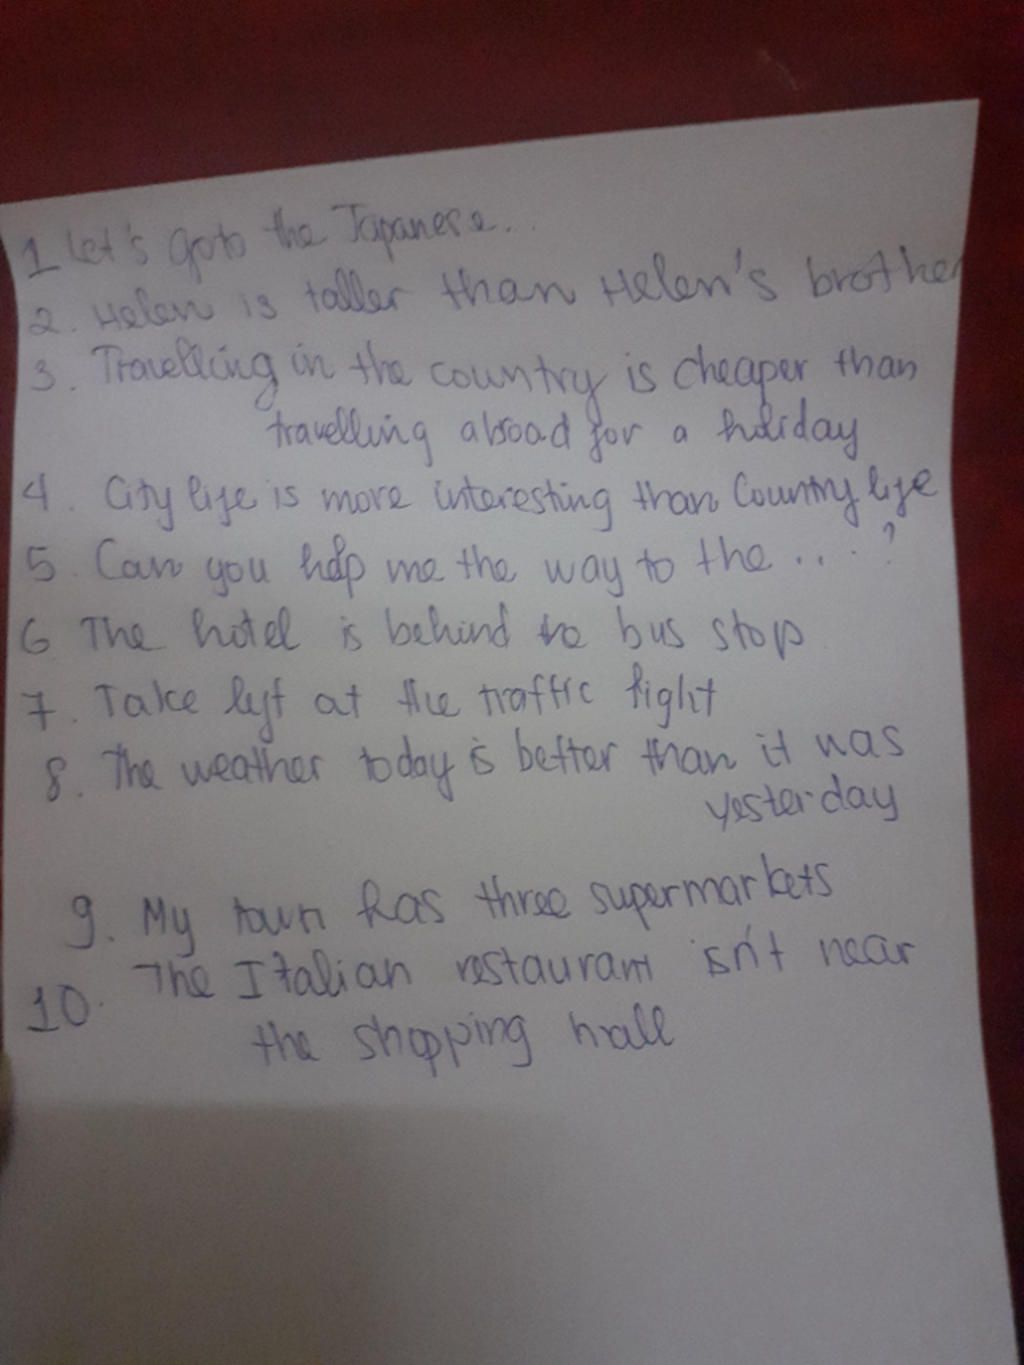 1 Let's go to the Japanese...
2. Helen is taller than Helen's brother
3. Travelling in the country is cheaper than
travelling abroad for a holiday
4. City life is more interesting than Country life
5. Can you help me the way to the ....?
6 The hotel is behind the bus stop
7. Take left at the traffic light
8. The weather today is better than it was
yesterday
9. My town has three supermarkets
10. The Italian restaurant isn't near
the shopping mall